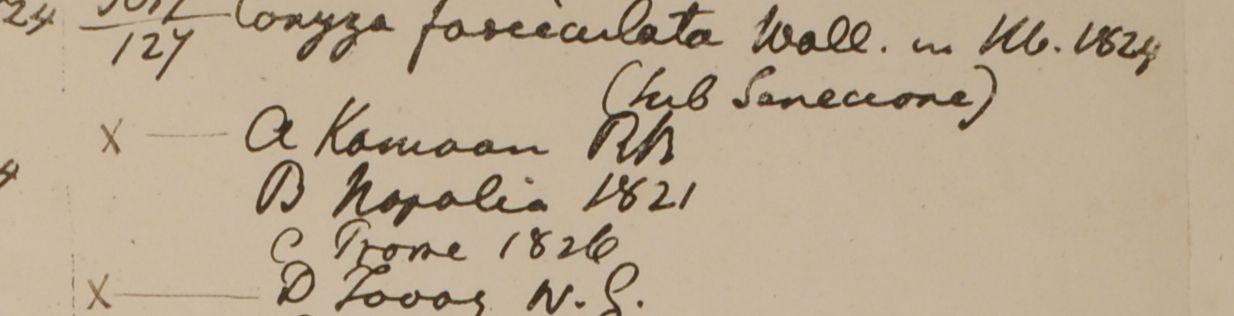 24 127 Conyza fasciculata Wall. in Hb. 1824
(sub Senecione)
X — A Kamaon RB
B Napalia 1821
C Prome 1826
X — D Tavoy W. G.